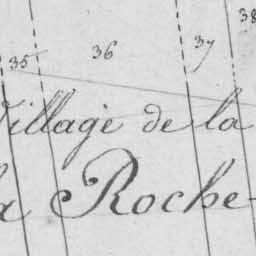 38
37
36
35
Village de la
la Roche-